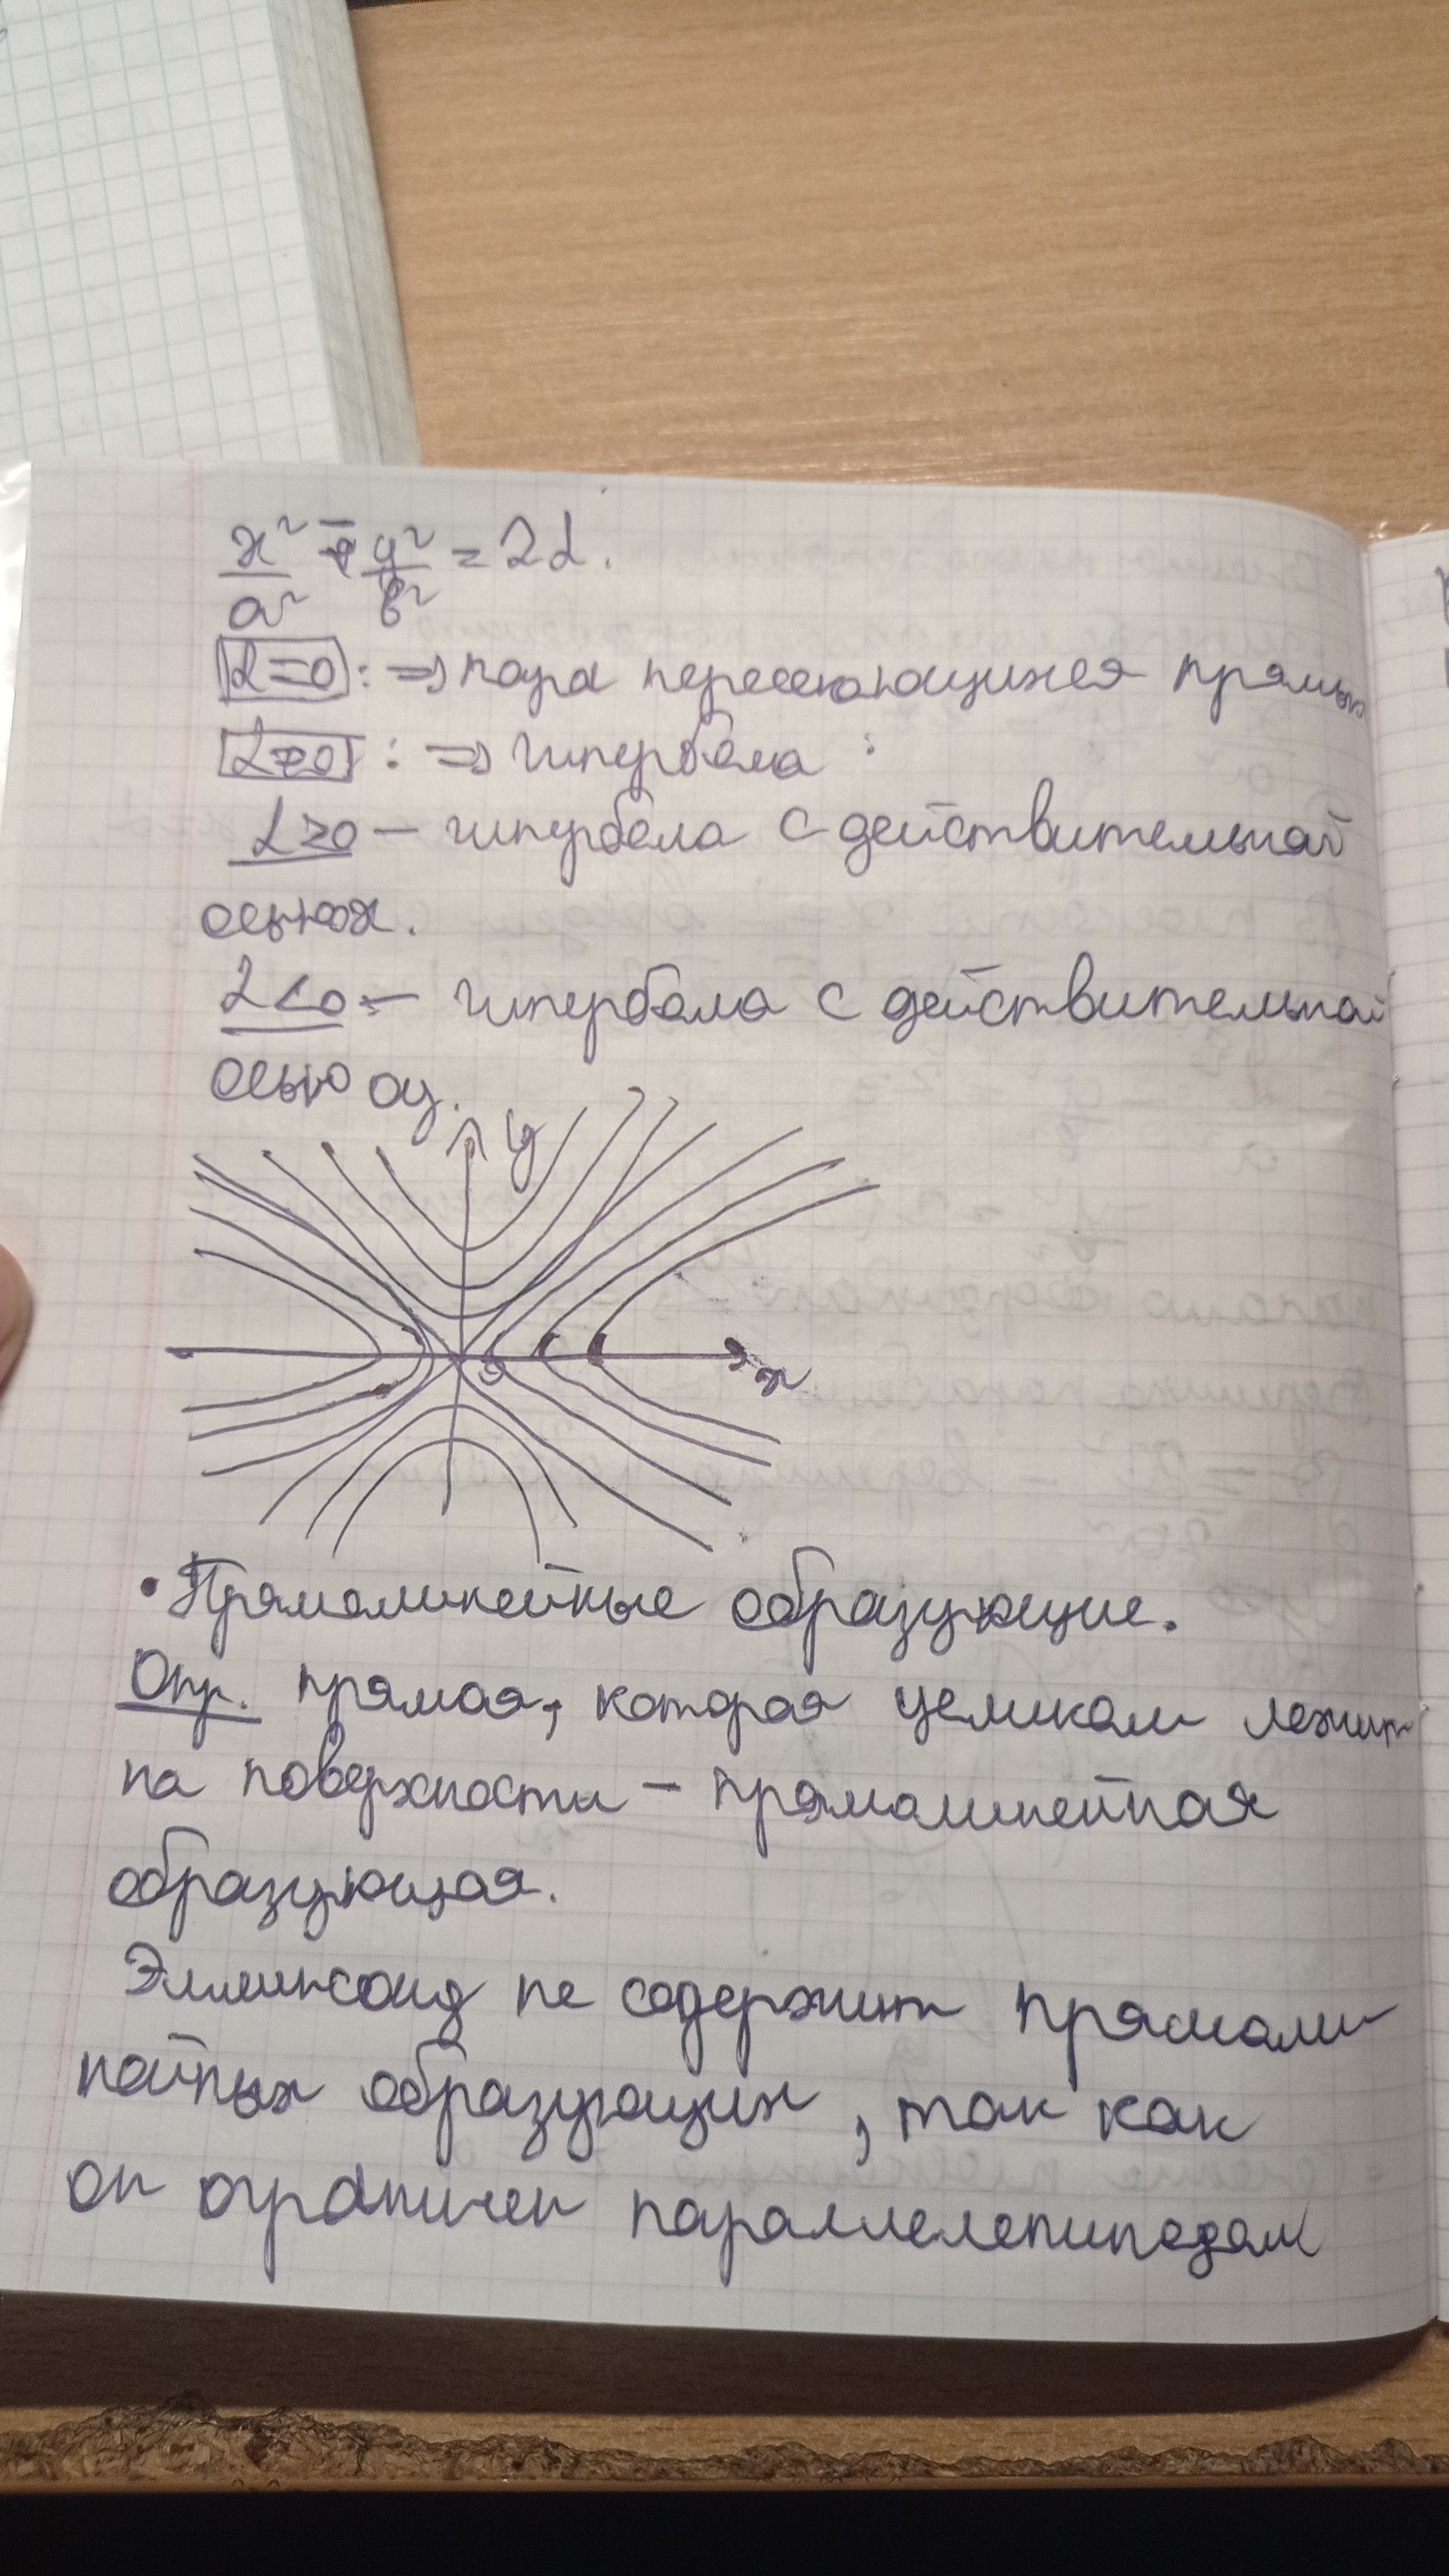 x²/a² - y²/b² = 2α.
α=0 : ⇒ пара пересекающихся прямых
α≠0 : ⇒ гипербола :
α>0 – гипербола с действительной
осью ox.
α<0 – гипербола с действительной
осью oy.
y
x
• Прямолинейные образующие.
Опр. прямая, которая целиком лежит
на поверхности – прямолинейная
образующая.
Эллипсоид не содержит прямоли
нейных образующих, так как
он ограничен параллелепипедом